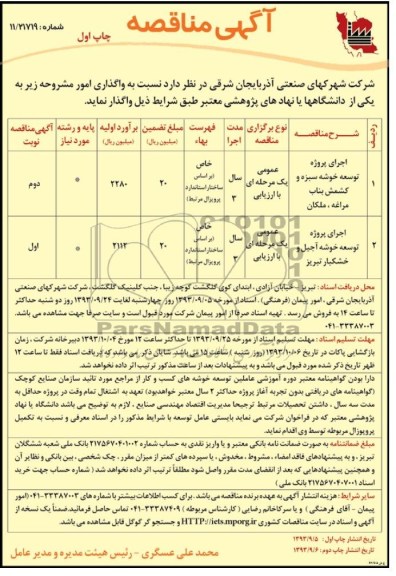 آگهی مناقصه
شماره : ۱۱/۲۱۷۱۹
چاپ اول
شرکت شهرکهای صنعتی آذربایجان شرقی در نظر دارد نسبت به واگذاری امور مشروحه زیر به
یکی از دانشگاهها یا نهاد های پژوهشی معتبر طبق شرایط ذیل واگذار نماید.
ردیف شرح مناقصه نوع برگزاری مناقصه مدت اجرا فهرست بهاء مبلغ تضمین (میلیون ریال) برآورد اولیه (میلیون ریال) پایه و رشته مورد نیاز آگهی مناقصه نوبت
۱ اجرای پروژه توسعه خوشه سبزه و کشمش بناب مراغه ، ملکان عمومی یک مرحله ای با ارزیابی ۳ سال خاص (بر اساس ساختار استاندارد پروپزال مرتبط) ۲۰ ۲۲۸۰ * دوم
۲ اجرای پروژه توسعه خوشه آجیل و خشکبار تبریز عمومی یک مرحله ای با ارزیابی ۳ سال خاص (بر اساس ساختار استاندارد پروپزال مرتبط) ۲۰ ۲۱۱۲ * اول
ParsNamadData
محل دریافت اسناد : تبریز - خیابان آزادی ، ابتدای کوی گلگشت کوچه زیبا ، جنب کلینیک گلگشت ، شرکت شهرکهای صنعتی
آذربایجان شرقی ، امور پیمان (فرهنگی) . اسناد از مورخه ۱۳۹۳/۰۹/۰۵ روز چهارشنبه لغایت ۱۳۹۳/۰۹/۲۴ روز دو شنبه حداکثر
تا ساعت ۱۴ به فروش می رسد . تهیه اسناد صرفا از امور پیمان شرکت مورد قبول است و سایت صرفا جهت مشاهده می باشد.
۰۴۱-۳۳۳۸۷۰۰۳
مهلت تسلیم اسناد : مهلت تسلیم اسناد از مورخه ۱۳۹۳/۰۹/۲۵ تا حداکثر ساعت ۱۲ مورخ ۱۳۹۳/۱۰/۰۴ دبیرخانه شرکت ، زمان
بازگشایی پاکات در تاریخ ۱۳۹۳/۱۰/۰۶ (روز شنبه ) ساعت ۱۵ می باشد. شایان ذکر می باشد که دریافت اسناد فقط تا ساعت ۱۲
ظهر تاریخ ذکر شده مورد قبول می باشد و به پیشنهادات بعد از ساعت مذکور ترتیب اثر داده نخواهد شد.
دارا بودن گواهینامه معتبر دوره آموزشی عاملین توسعه خوشه های کسب و کار از مراجع مورد تائید سازمان صنایع کوچک
(گواهینامه های دریافتی بدون تجربه آغاز پروژه حداکثر ۲ سال معتبر خواهدبود) تعهد به اشتغال تمام وقت در پروژه حداقل به
مدت سه سال ، داشتن تحصیلات مرتبط ترجیحا مدیریت اقتصاد مهندسی صنایع ، لازم به توضیح می باشد دانشگاه یا نهاد
پژوهشی معتبر که در فراخوان شرکت می نماید بایستی عامل توسعه با شرایط مذکور را در اسناد معرفی و نسبت به تکمیل
پروپوزال مربوطه توسط وی اقدام نماید.
مبلغ ضمانتنامه به صورت ضمانت نامه بانکی معتبر و یا واریز نقدی به حساب شماره ۲۱۷۵۶۷۰۴۰۱۰۰۲ بانک ملی شعبه ششگلان
تبریز . و به پیشنهادهای فاقد امضاء ، مشروط ، مخدوش ، یا سپرده های کمتر از میزان مقرر ، چک شخصی ، بین بانکی و نظایر آن
و همچنین پیشنهادهایی که بعد از انقضای مدت مقرر واصل شود مطلقاً ترتیب اثر داده نخواهد شد ( شماره حساب جهت خرید
اسناد ۲۱۷۵۶۷۰۴۰۷۰۰۱ بانک ملی )
سایر شرایط : هزینه انتشار آگهی به عهده برنده مناقصه می باشد. برای کسب اطلاعات بیشتر با شماره های ۳۳۳۸۷۰۰۳-۰۴۱ (امور
پیمان - آقای فرهنگی ) و یا سرکاخانم رضایی (کارشناس مربوطه ) ۳۳۳۸۷۴۰۹-۰۴۱ تماس حاصل فرمائید. ضمناً یک نسخه از
آگهی و اسناد در سایت مناقصات کشوری HTTP://iets.mporg.ir و جستجو گر گوگل قابل مشاهده می باشد.
تاریخ انتشار چاپ اول : ۱۳۹۳/۹/۵
تاریخ انتشار چاپ دوم : ۱۳۹۳/۹/۶
محمد علی عسگری - رئیس هیئت مدیره و مدیر عامل